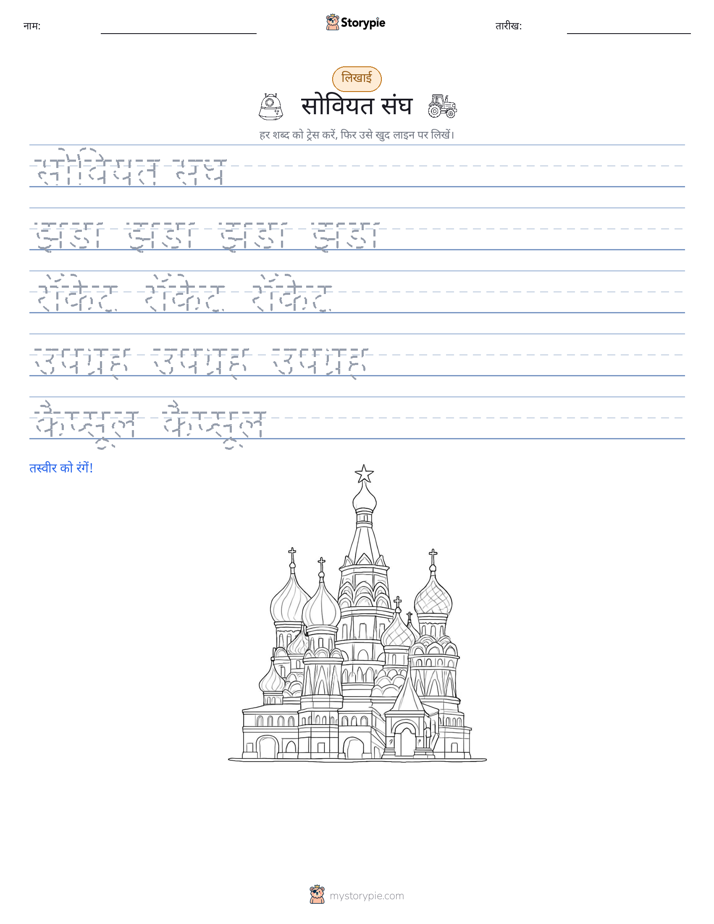 नाम:
Storypie
तारीख:
लिखाई
सोवियत संघ
हर शब्द को ट्रेस करें, फिर उसे खुद लाइन पर लिखें।
सोवियत सघ
झडा झडा झडा झडा
रॉकेट रॉकेट रॉकेट
उपग्रह उपग्रह उपग्रह
कैप्सूल कैप्सूल
तस्वीर को रंगें!
mystorypie.com